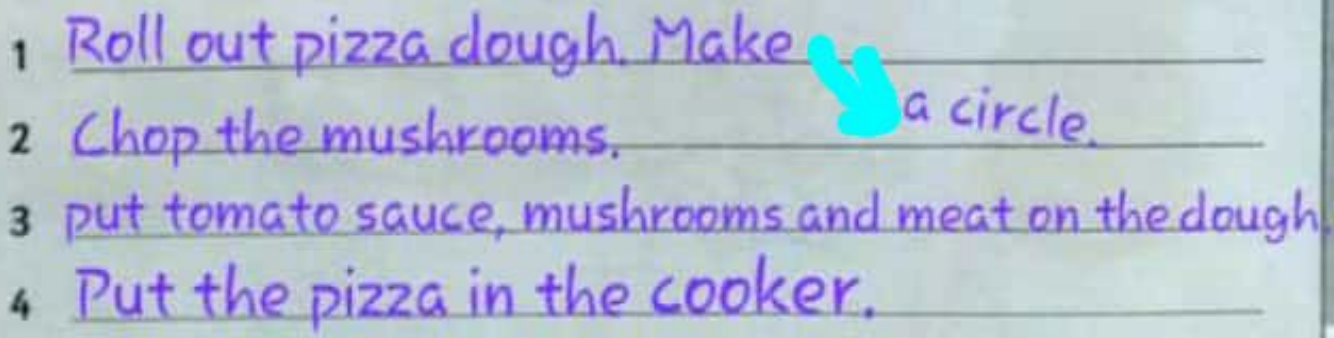 1 Roll out pizza dough. Make
a circle.
2 Chop the mushrooms.
3 put tomato sauce, mushrooms and meat on the dough.
4 Put the pizza in the cooker.